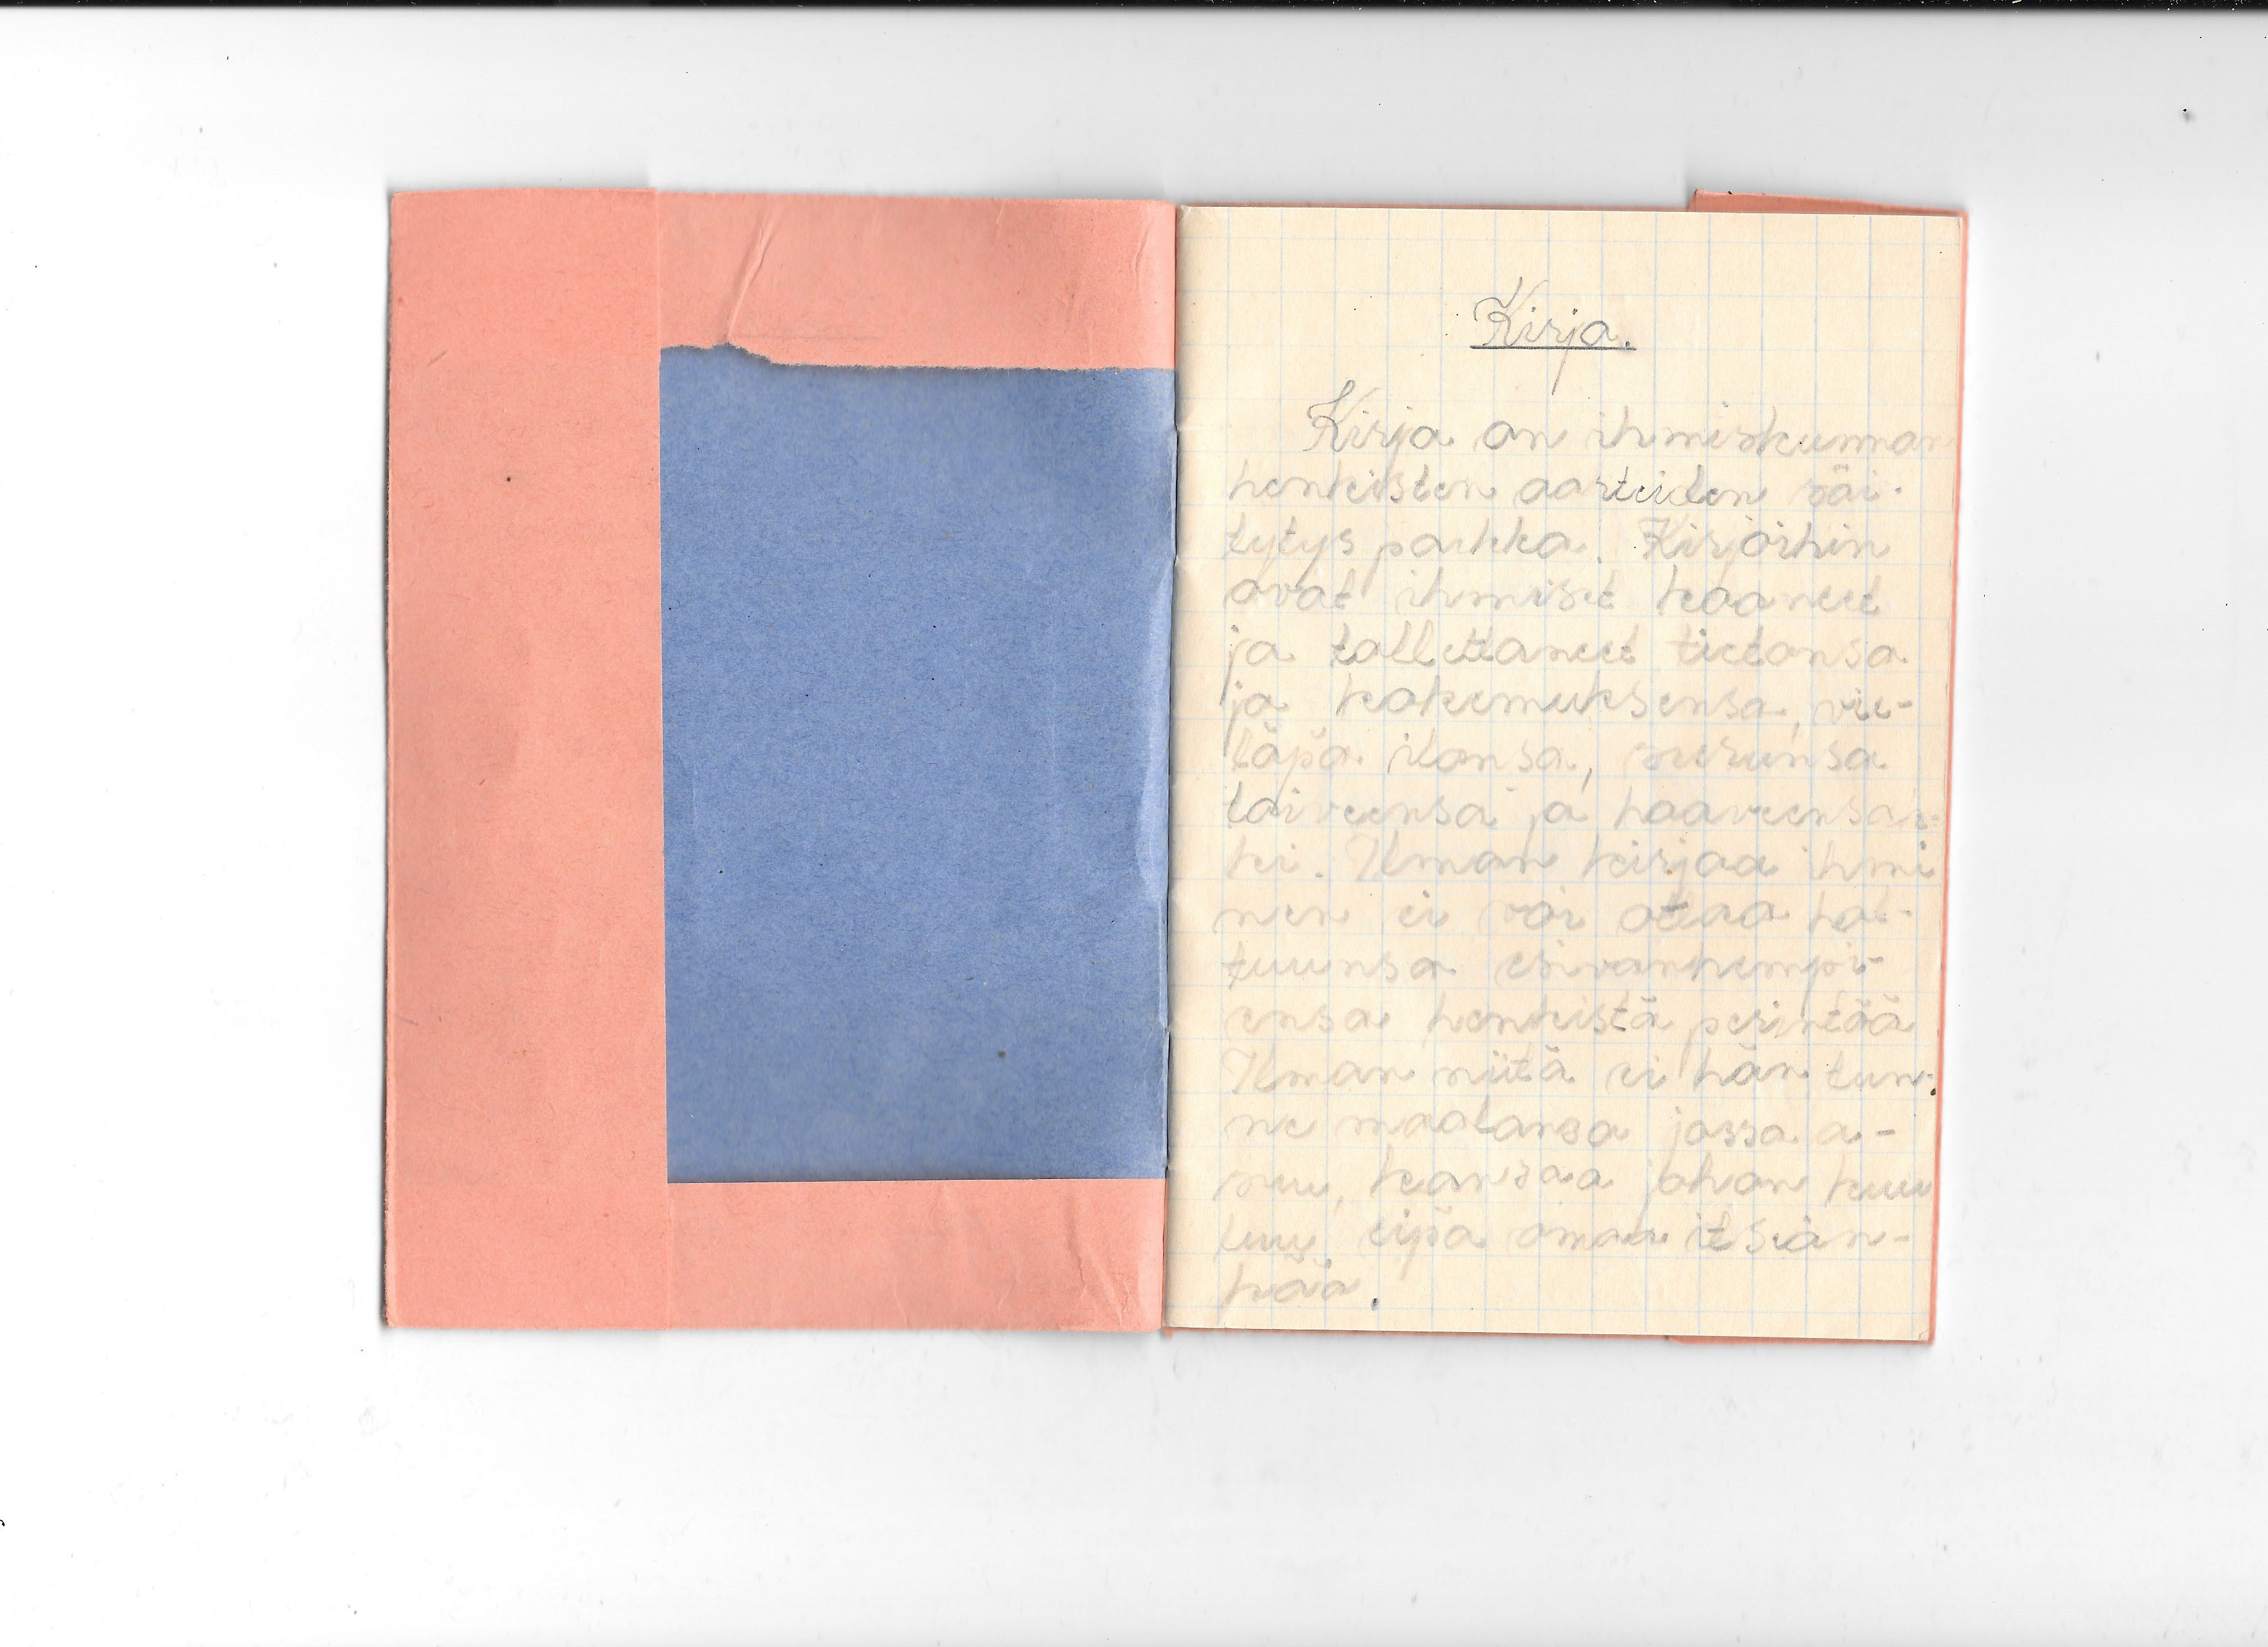 Kirja.
Kirja on ihmiskunnan
henkisten aarteiden säi-
tytys paikka. Kirjoihin
ovat ihmiset koonneet
ja tallettaneet tietonsa
ja kokemuksensa, vie-
läpä ilonsa, surunsa
toiveensa ja haaveensa-
ki. Ilman kirjaa ihmi
nen ei voi ottaa hal-
tuunsa esivanhempi-
ensa henkistä perintöä
Ilman niitä ei hän tun-
ne maatansa jossa a-
suu, kansaa johon kuu
luu, eipä omaa itseän-
kää.